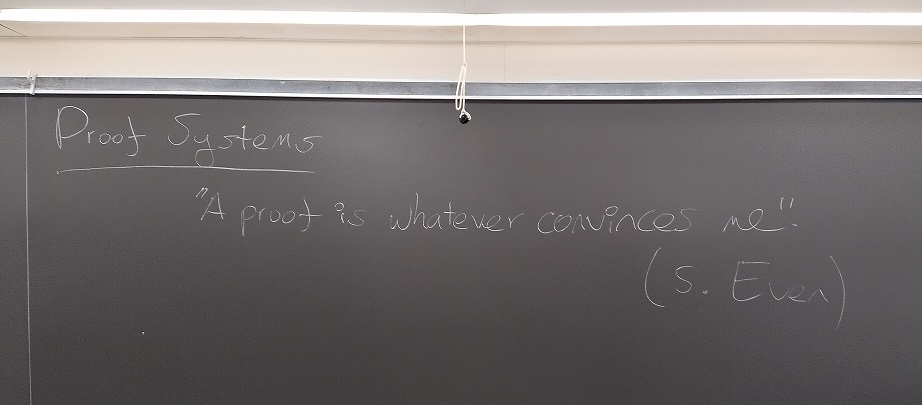 Proof Systems
"A proof is whatever convinces me".
(S. Even)